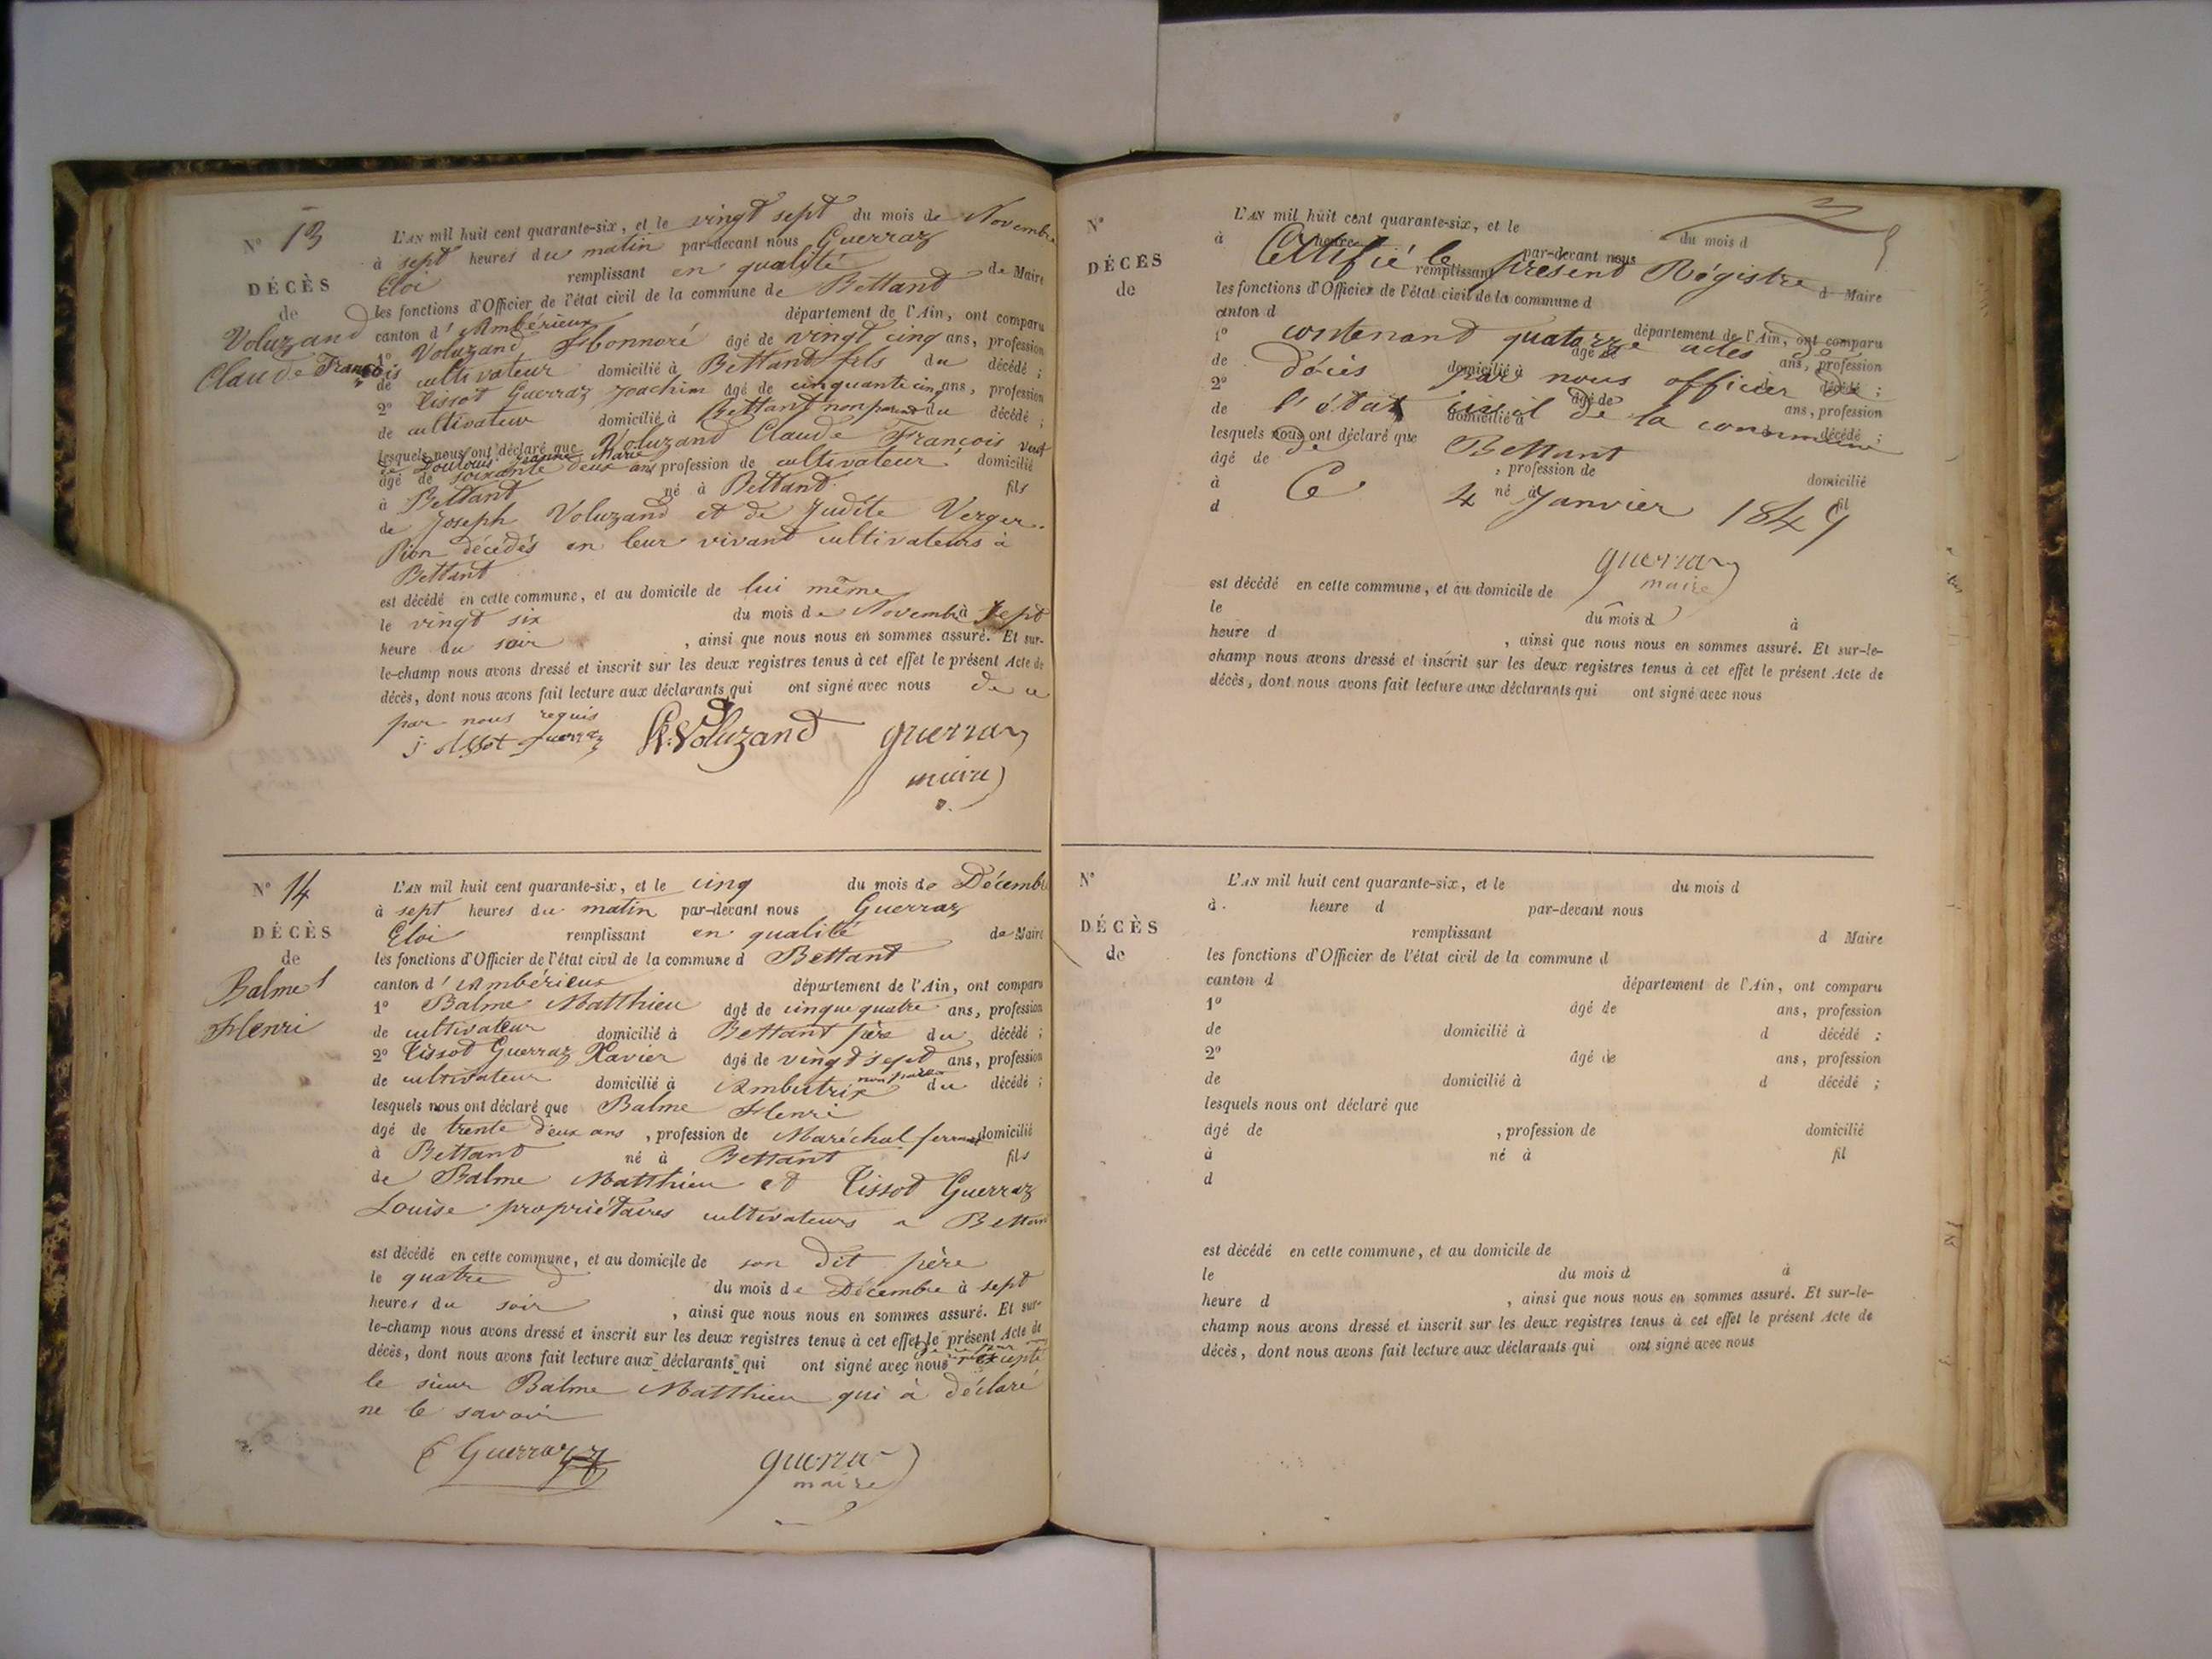 N° 13
DÉCÈS
de
Voluzand
Claude François
L'AN mil huit cent quarante-six, et le vingt sept du mois de Novembre
à sept heures du matin par-devant nous Guerraz
Eloi remplissant en qualité de Maire
les fonctions d'Officier de l'état civil de la commune de Bettant
canton d'Ambérieux département de l'Ain, ont comparu
1° Voluzand Honnoré âgé de vingt cinq ans, profession
de cultivateur domicilié à Bettant fils du décédé ;
2° Tissot Guerraz Joachim âgé de cinquante cinq ans, profession
de cultivateur domicilié à Bettant non parent du décédé ;
lesquels nous ont déclaré que Voluzand Claude François veuf
de Jeanne Marie
âgé de soixante deux ans profession de cultivateur, domicilié
à Bettant né à Bettant fils
de Joseph Voluzand et de Judite Verger-
Pion décédés en leur vivant cultivateurs à
Bettant
est décédé en cette commune, et au domicile de lui même
le vingt six du mois de Novembre à sept
heure du soir , ainsi que nous nous en sommes assuré. Et sur-
le-champ nous avons dressé et inscrit sur les deux registres tenus à cet effet le présent Acte de
décès, dont nous avons fait lecture aux déclarants qui ont signé avec nous de ce
par nous requis
j tissot guerraz Voluzand guerraz
maire
N° 14
DÉCÈS
de
Balme
Henri
L'AN mil huit cent quarante-six, et le cinq du mois de Décembre
à sept heures du matin par-devant nous Guerraz
Eloi remplissant en qualité de Maire
les fonctions d'Officier de l'état civil de la commune d Bettant
canton d'Ambérieux département de l'Ain, ont comparu
1° Balme Matthieu âgé de cinque quatre ans, profession
de cultivateur domicilié à Bettant père du décédé ;
2° Tissot Guerraz Xavier âgé de vingt sept ans, profession
de cultivateur domicilié à Ambutrix non parent du décédé ;
lesquels nous ont déclaré que Balme Henri
âgé de trente deux ans , profession de Maréchal ferrant domicilié
à Bettant né à Bettant fils
de Balme Matthieu et Tissot Guerraz
Louise propriétaires cultivateurs a Bettant
est décédé en cette commune, et au domicile de son dit père
le quatre du mois de Décembre à sept
heures du soir , ainsi que nous nous en sommes assuré. Et sur-
le-champ nous avons dressé et inscrit sur les deux registres tenus à cet effet le présent Acte de
décès, dont nous avons fait lecture aux déclarants qui ont signé avec nous excepté
le sieur Balme Matthieu qui à déclaré
ne le savoir
Guerraz guerraz
maire
N°
DÉCÈS
de
L'AN mil huit cent quarante-six, et le du mois d
à heure par-devant nous
Certifié le présent Régistre
remplissant d Maire
les fonctions d'Officier de l'état civil de la commune d
canton d département de l'Ain, ont comparu
1° contenant quatorze actes de
âgé de ans, profession
de décès par nous officier de
domicilié à décédé ;
2° âgé de ans, profession
de l'état civil de la commune
domicilié à décédé ;
lesquels nous ont déclaré que
de Bettant
âgé de , profession de domicilié
à né à fil
d Ce 4 Janvier 1847
guerraz
maire
est décédé en cette commune, et au domicile de
le du mois d à
heure d , ainsi que nous nous en sommes assuré. Et sur-le-
champ nous avons dressé et inscrit sur les deux registres tenus à cet effet le présent Acte de
décès, dont nous avons fait lecture aux déclarants qui ont signé avec nous
N°
DÉCÈS
de
L'AN mil huit cent quarante-six, et le du mois d
à heure d par-devant nous
remplissant d Maire
les fonctions d'Officier de l'état civil de la commune d
canton d département de l'Ain, ont comparu
1° âgé de ans, profession
de domicilié à d décédé ;
2° âgé de ans, profession
de domicilié à d décédé ;
lesquels nous ont déclaré que
âgé de , profession de domicilié
à né à fil
d
est décédé en cette commune, et au domicile de
le du mois d à
heure d , ainsi que nous nous en sommes assuré. Et sur-le-
champ nous avons dressé et inscrit sur les deux registres tenus à cet effet le présent Acte de
décès, dont nous avons fait lecture aux déclarants qui ont signé avec nous